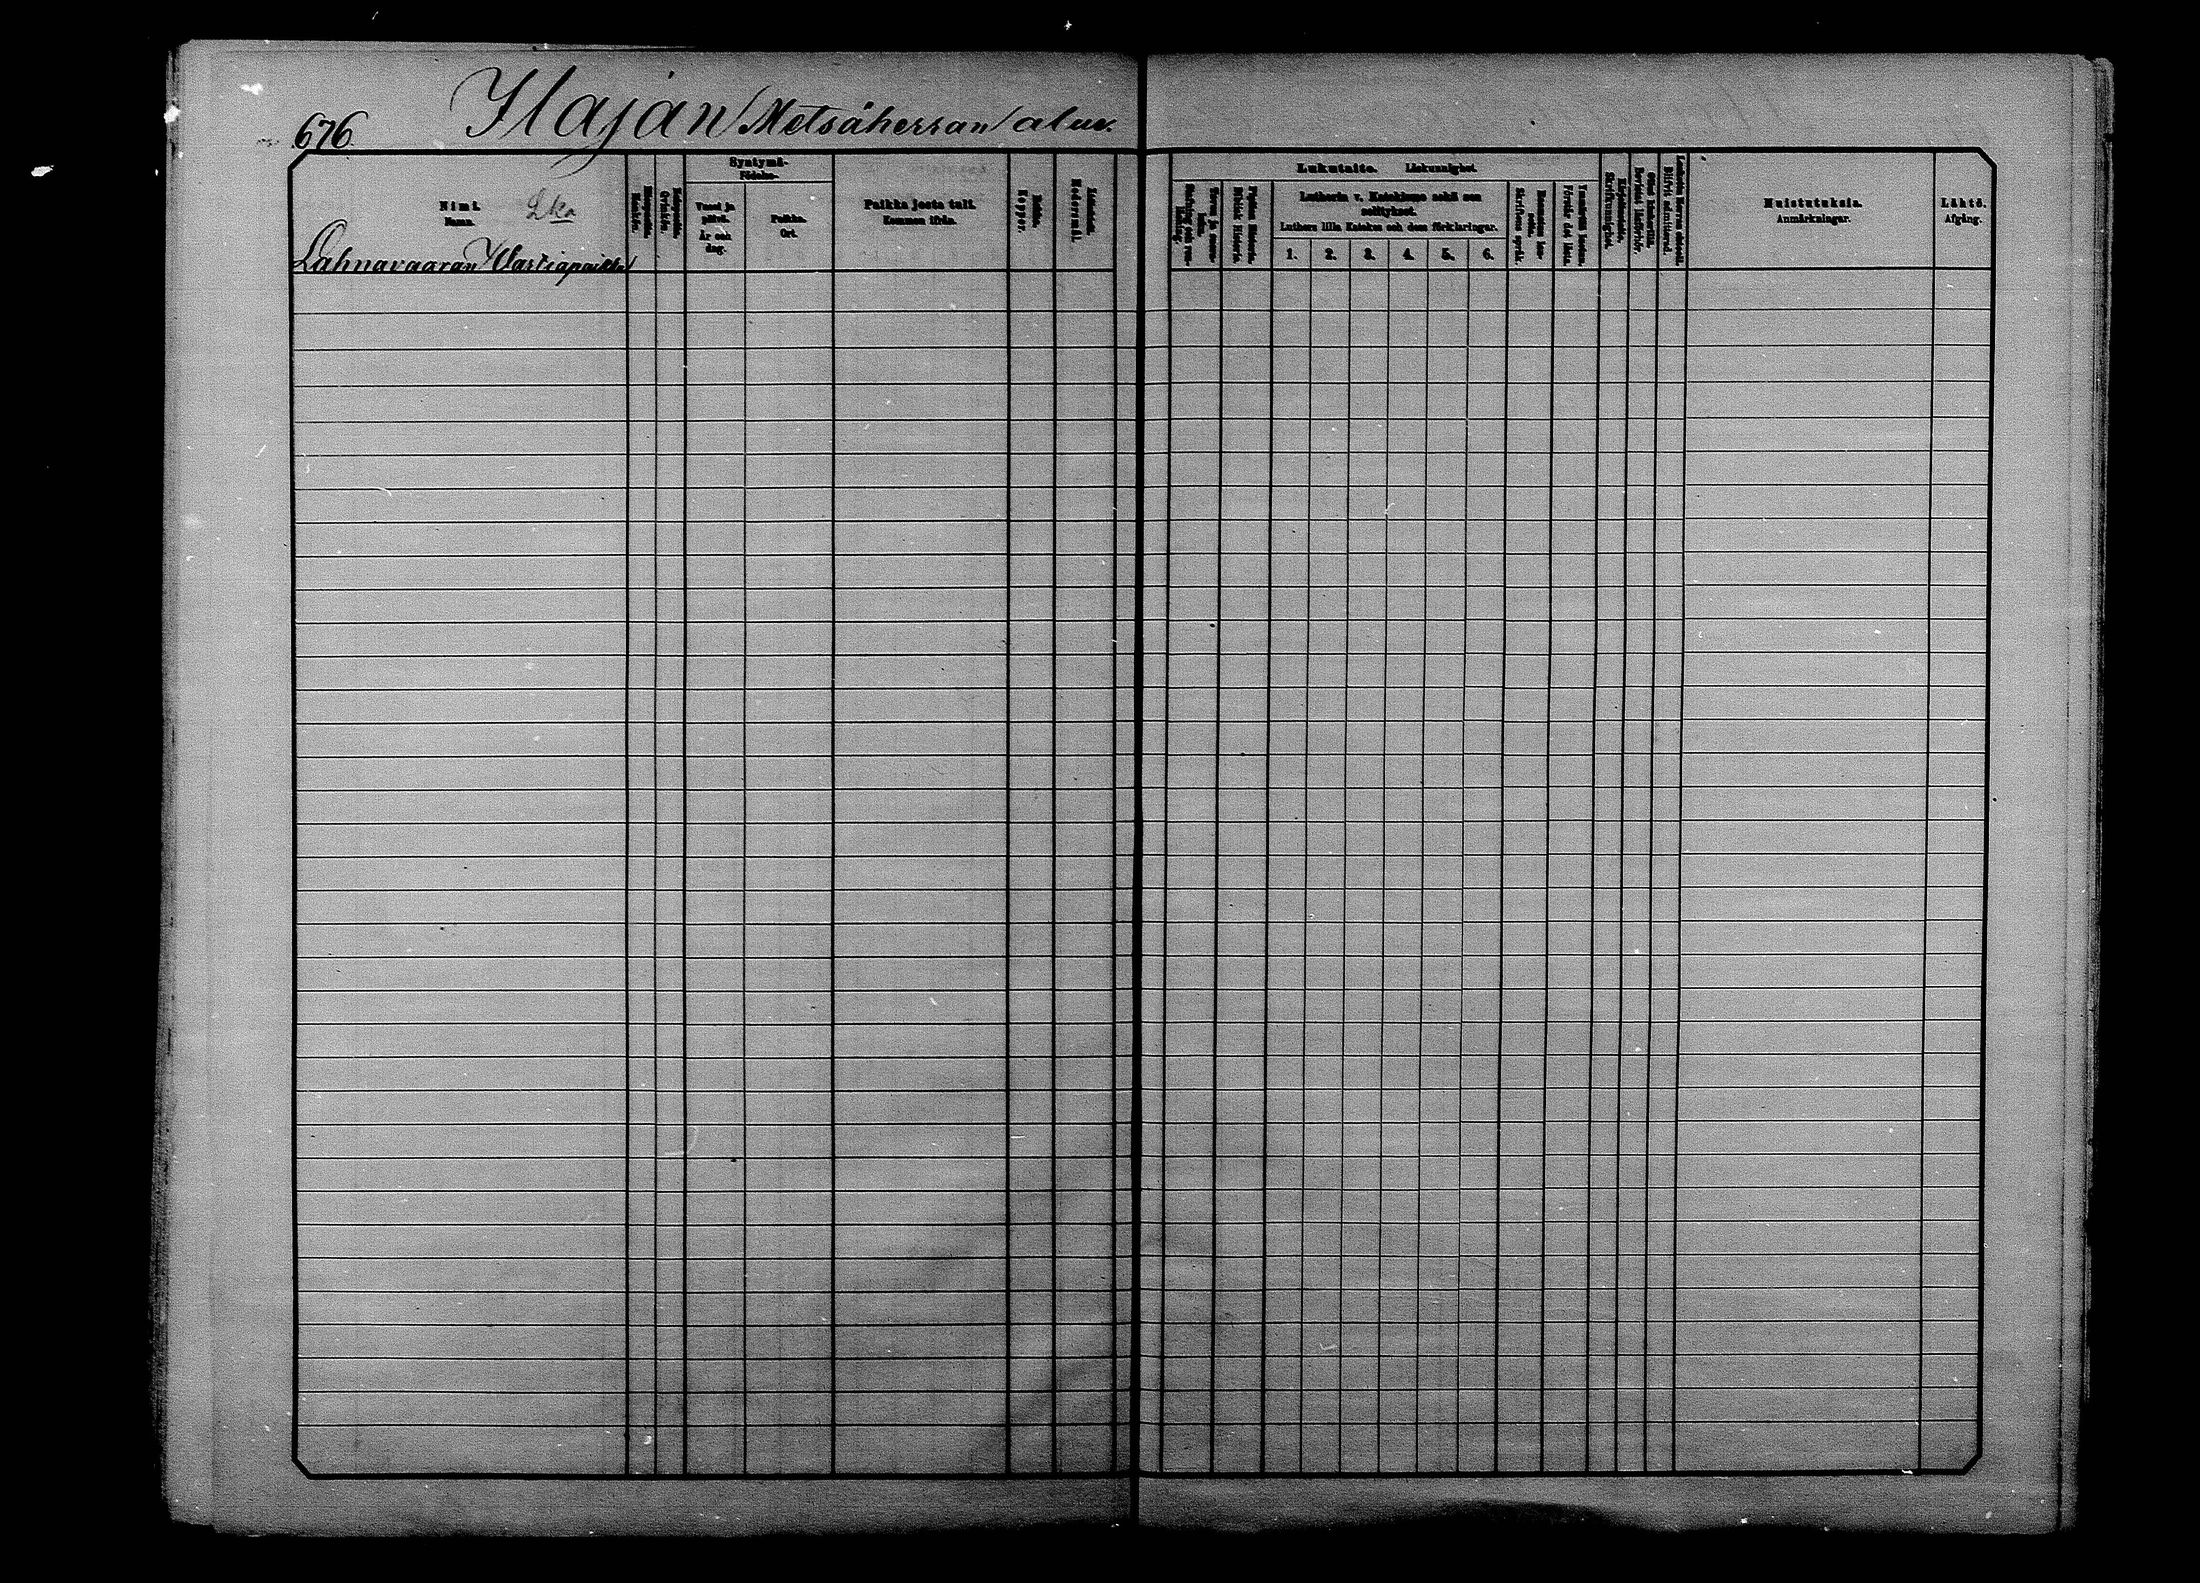 676.
Ylajan Metsäherran alue.
Nimi.
Namn.
Lka
Lahnavaaran Vartiapaikka
Miespuolia.
Mankön.
Naispuolia.
Qvinkön.
Syntymä-
Födelse-
Vuosi ja
päivä.
År och
dag.
Paikka.
Ort.
Paikka josta tuli.
Kommen ifrån.
Rokko.
Koppor.
Lukutaito. Läskunnighet.
Lutherin v. Katekismo sekä sen
selitykset.
Luthers lilla Katekes och dess förklaringar.
1. 2. 3. 4. 5. 6.
Förstår det lästa.
Kirjoitustaito.
Skrifkunnighet.
Muistutuksia.
Anmärkningar.
Lähtö.
Afgång.